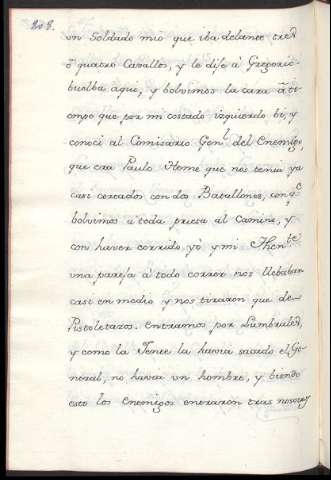 208.
un Soldado mio que iba delante tres
ô quatro Cavallos, y le dije à Gregorio
buelba aqui, y bolvimos la cara â ti-
empo que por mi costado izquierdo bi, y
conoci al Comisario Gen.l del Enemigo,
que era Paulo Heme que nos tenia ya
casi cercados con dos Batallones, con q.e
bolvimos à toda priesa al Camino, y
con haver corrido yo y mi Then.te
una pareja à todo correr nos llebaban
casi en medio y nos tiraron que de
Pistoletazos. entramos por Lumbrales,
y como la Jente la havia sacado el Ge-
neral, no havia un hombre, y biendo
esto los Enemigos entraron tras nosotros